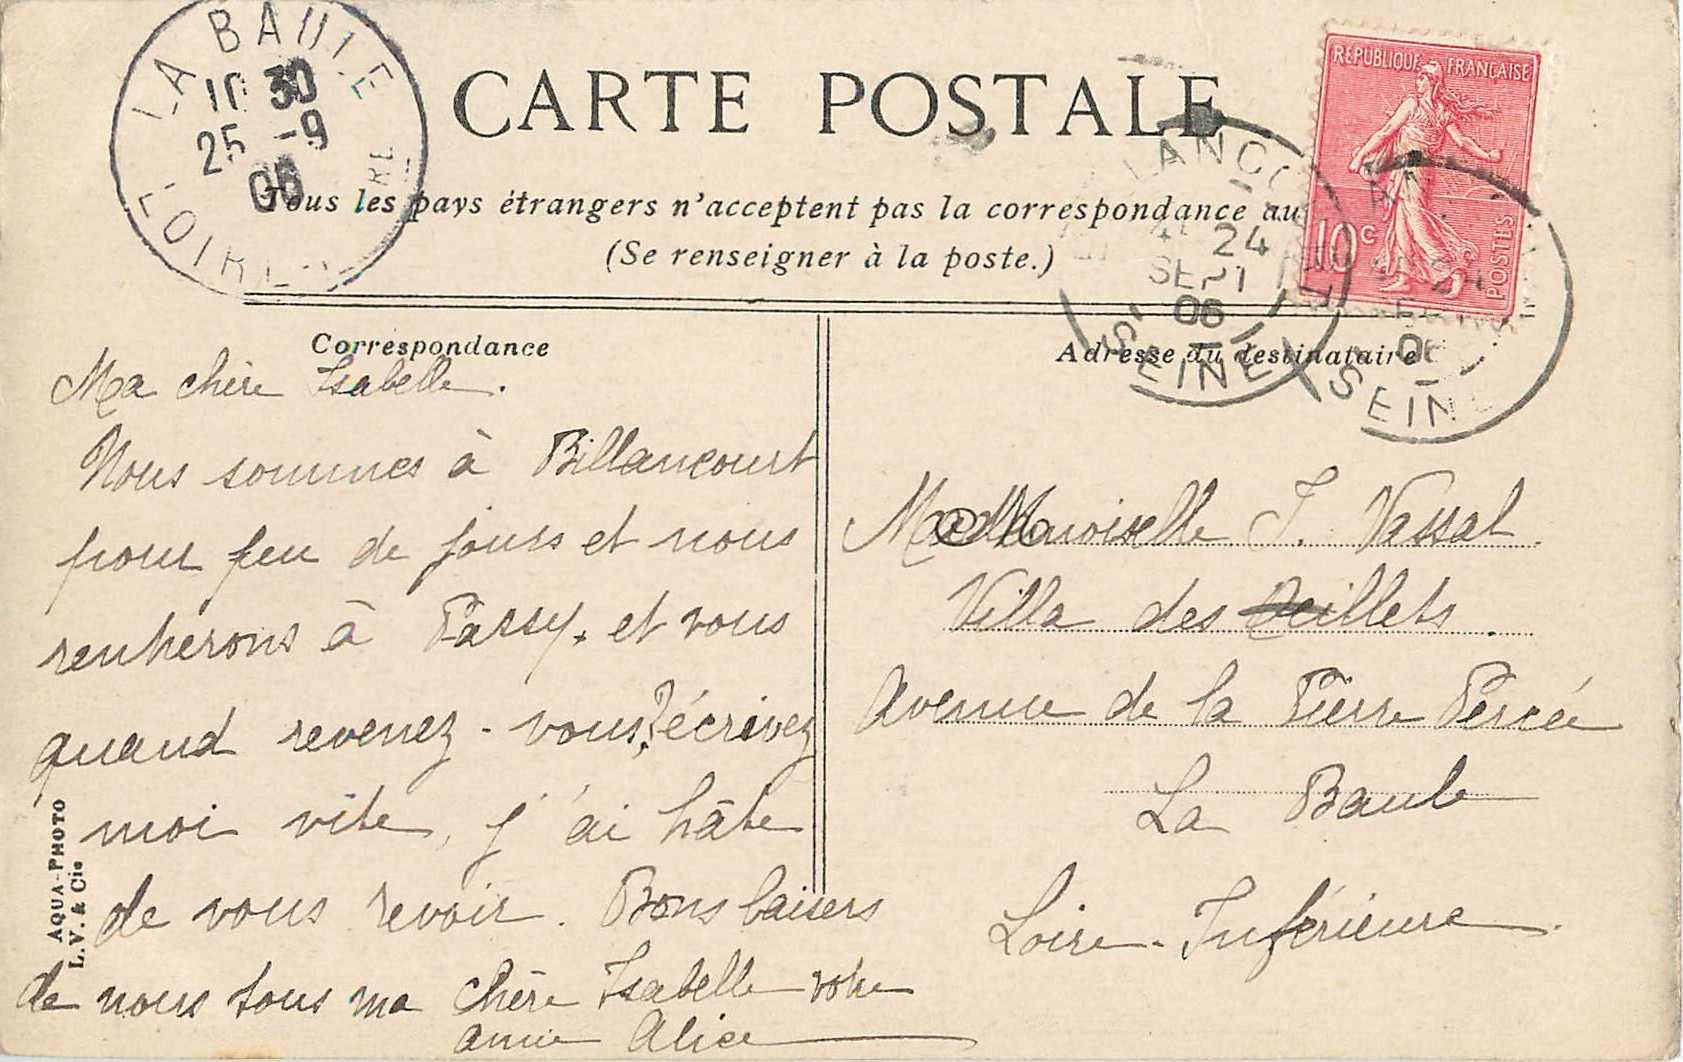 LA BAULE
10 30
25 -9
06
LOIRE
CARTE POSTALE
REPUBLIQUE FRANÇAISE
10c
POSTES
Tous les pays étrangers n'acceptent pas la correspondance au
(Se renseigner à la poste.)
24
SEPT
06
SEINE
06
SEIN
Correspondance
Adresse du destinataire
Ma chère Isabelle.
Nous sommes à Billancourt
pour peu de jours et nous
rentrerons à Passy. et vous
quand revenez-vous? écrivez
moi vite, j'ai hâte
de vous revoir. Bons baisers
de nous tous ma chère Isabelle votre
amie Alice
Mademoiselle I. Vassal.
Villa des Oeillets.
Avenue de la Pierre Percée
La Baule
Loire-Inférieure.
AQUA-PHOTO
L.V. & Cie